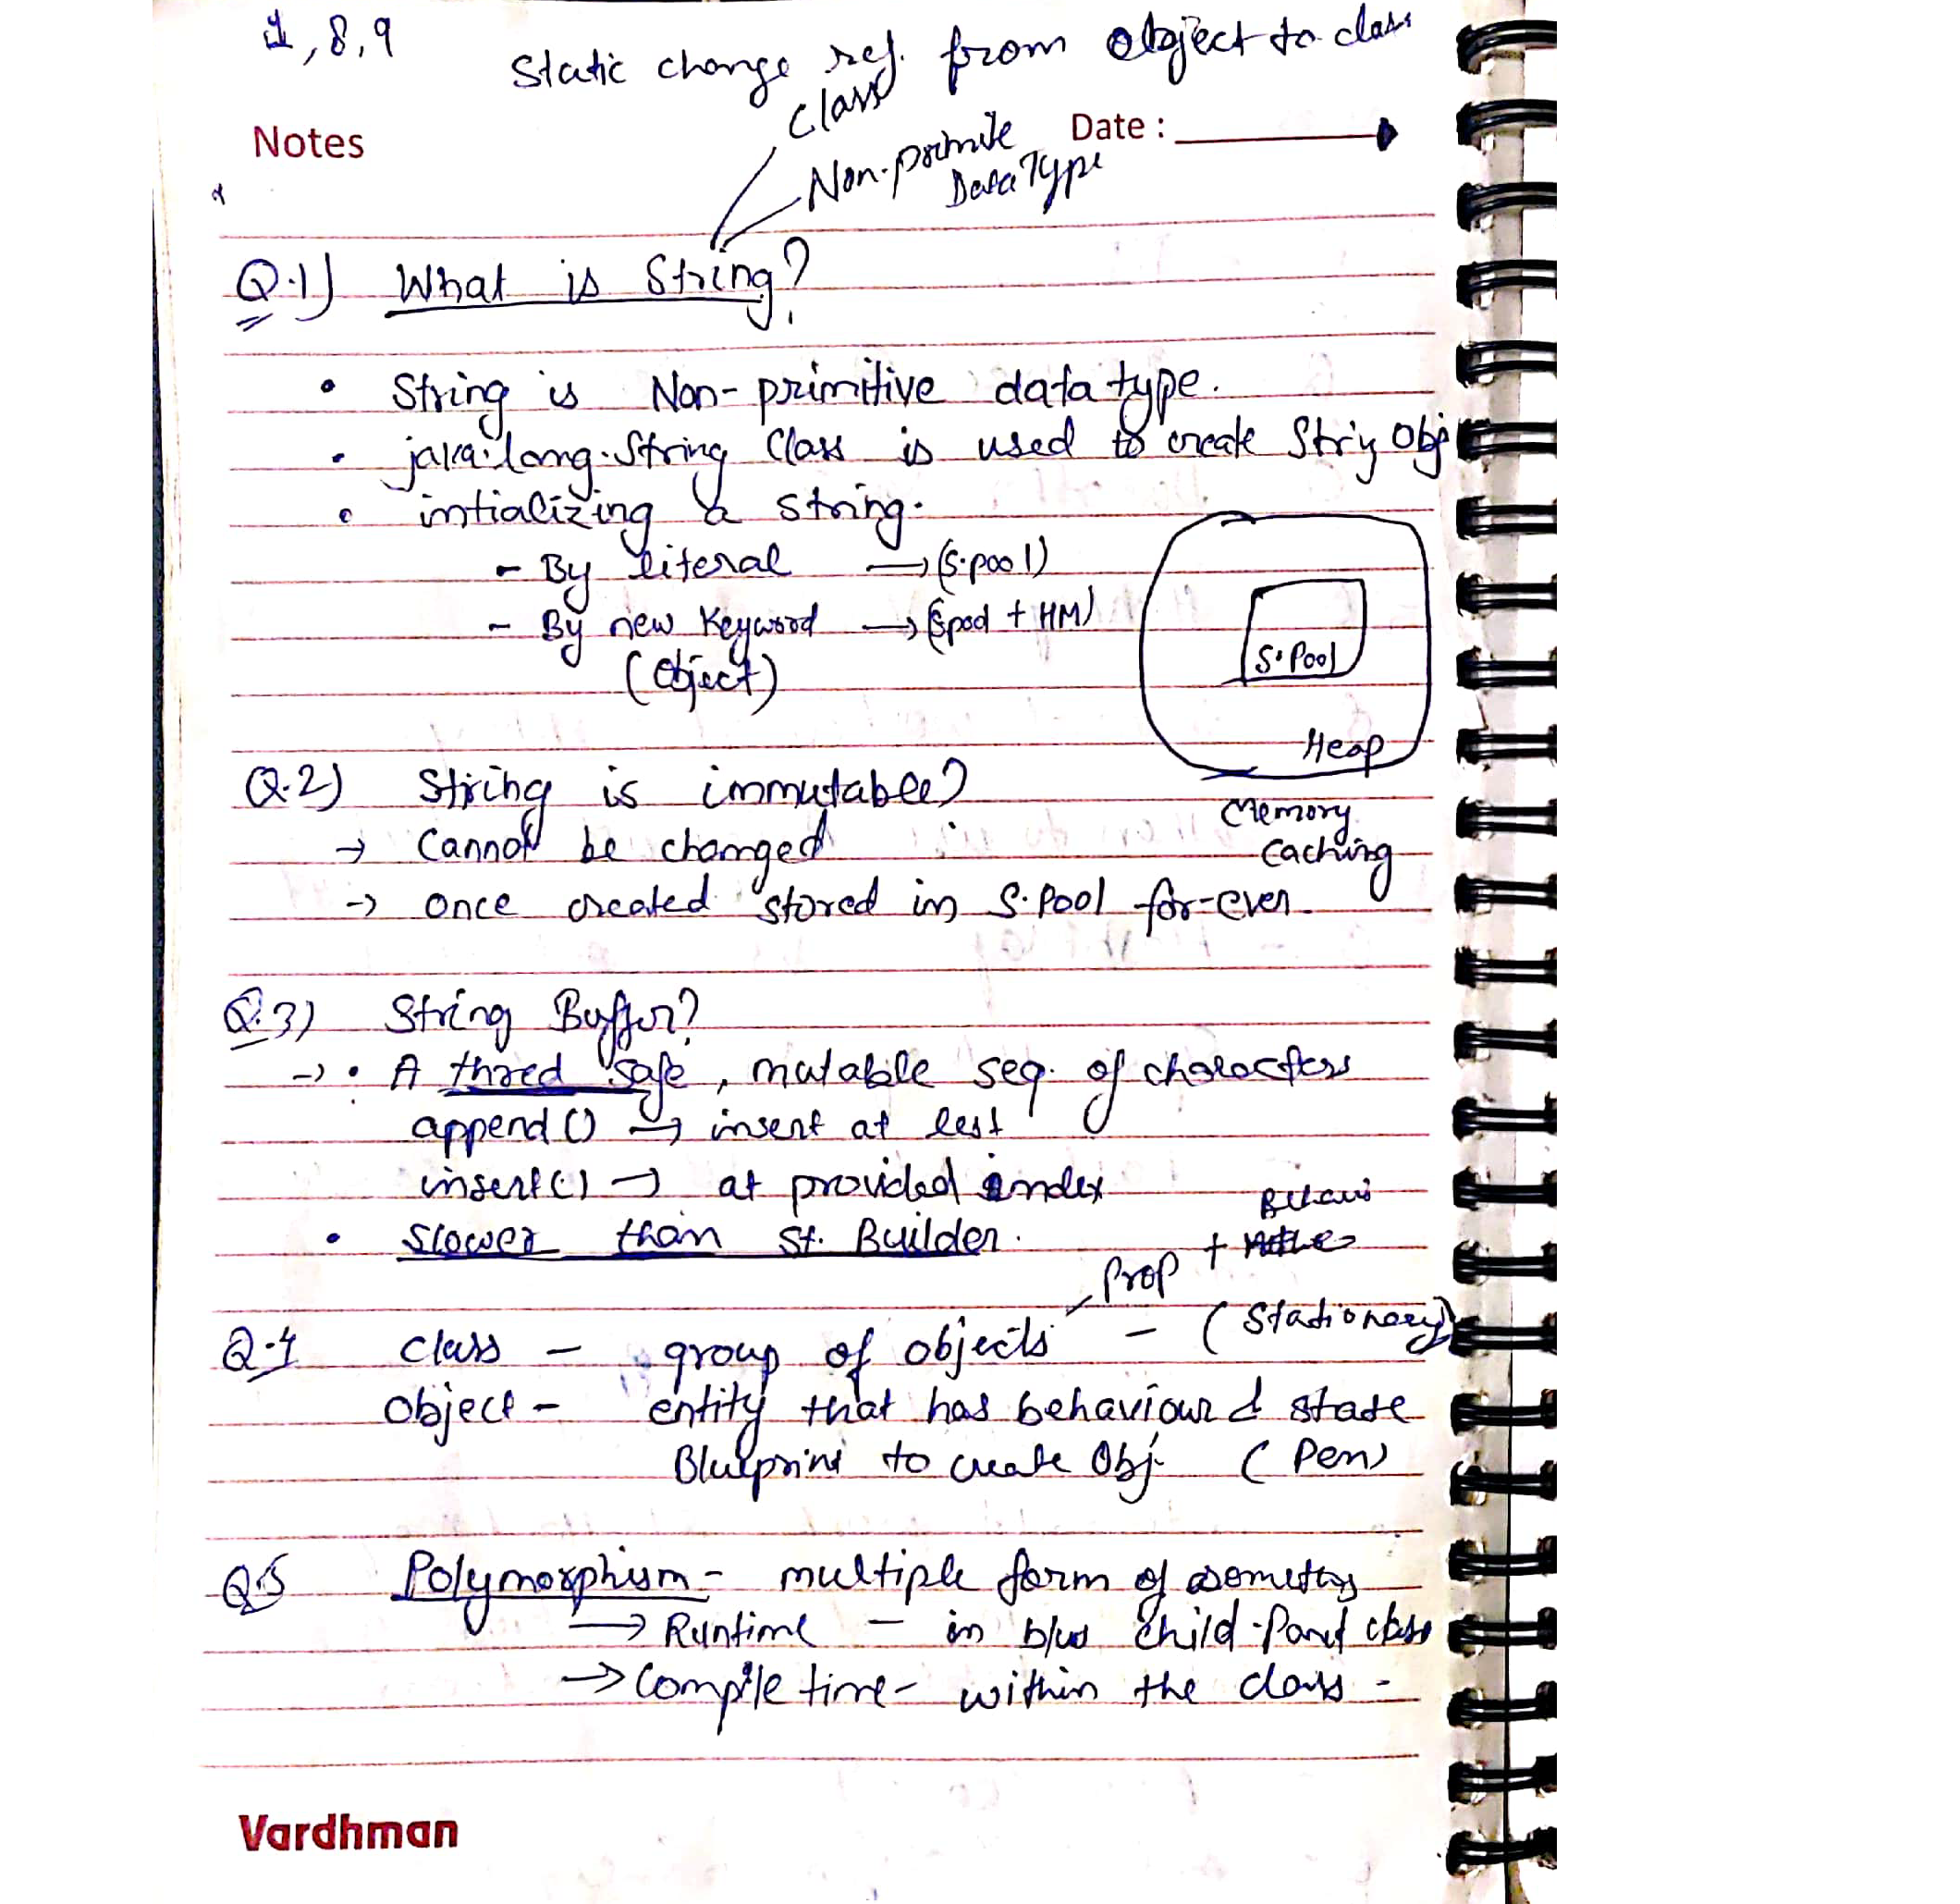 1, 8, 9
Static change ref. from object to class
class
Notes
Date :
Non-primite
Data Type
Q.1) What is String?
• String is Non-primitive data type.
• java.lang.String Class is used to create Striy Obj
• intializing a string.
- By literal → (S.pool)
- By new Keyword → (Spool + HM)
(Object)
S.Pool
Heap
Memory
Caching
Q.2) String is immutable?
→ Cannot be changed
→ once created stored in S.Pool for-ever.
Q.3) String Buffer?
→ • A thred safe, mutable seq. of characters
append() → insert at last
insert() → at provided index
• Slower than St. Builder.
Behavi
Prop +
Q.4 class - group of objects - (Stationery)
object - entity that has behaviour & state
Blueprint to create Obj. (Pen)
Q.5 Polymorphism - multiple form of
→ Runtime - in b/w child-Parent class
→ Compile time - within the class -
Vardhman